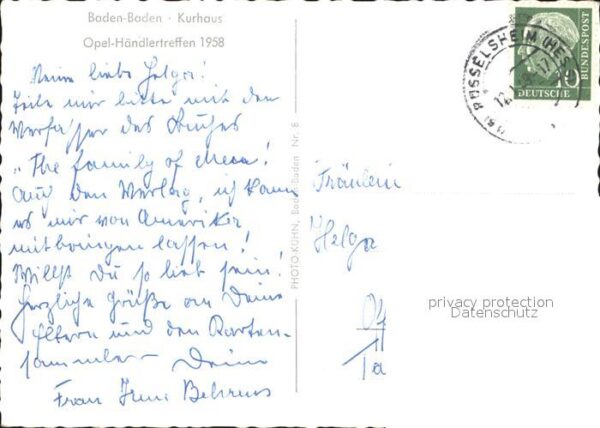 Baden-Baden · Kurhaus
Opel-Händlertreffen 1958
Meine liebe Helga!
Teile mir bitte mit den
Verfasser des Buches
"The family of Mean!
Auch den Verlag, ich kann
es mir von Amerika
mitbringen lassen!
Willst Du so lieb sein!
Herzliche Grüße an Deine
Eltern und den Karten-
sammler - Deine
Frau Irene Behrens
PHOTO-KÜHN, Baden-Baden Nr. 6
RÜSSELSHEIM (HES
10
DEUTSCHE
BUNDESPOST
Fräulein
Helga
privacy protection
Datenschutz